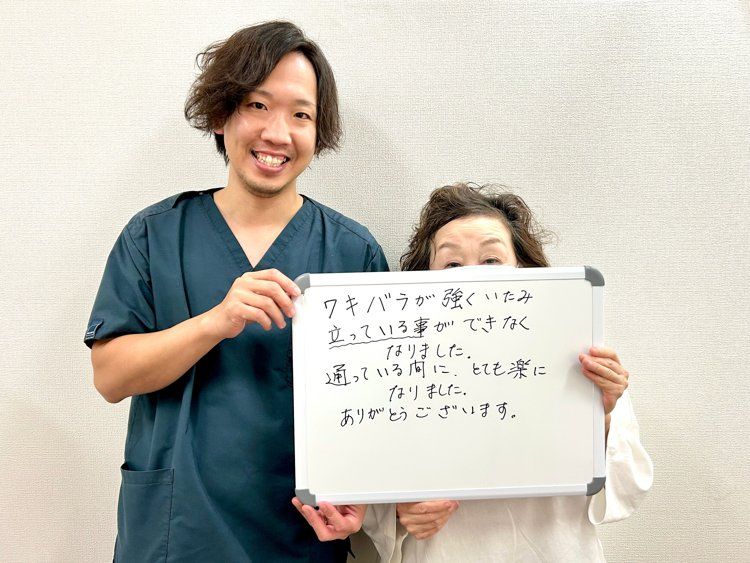 ワキバラが強くいたみ
立っている事ができなく
なりました。
通っている間に、とても楽に
なりました。
ありがとうございます。